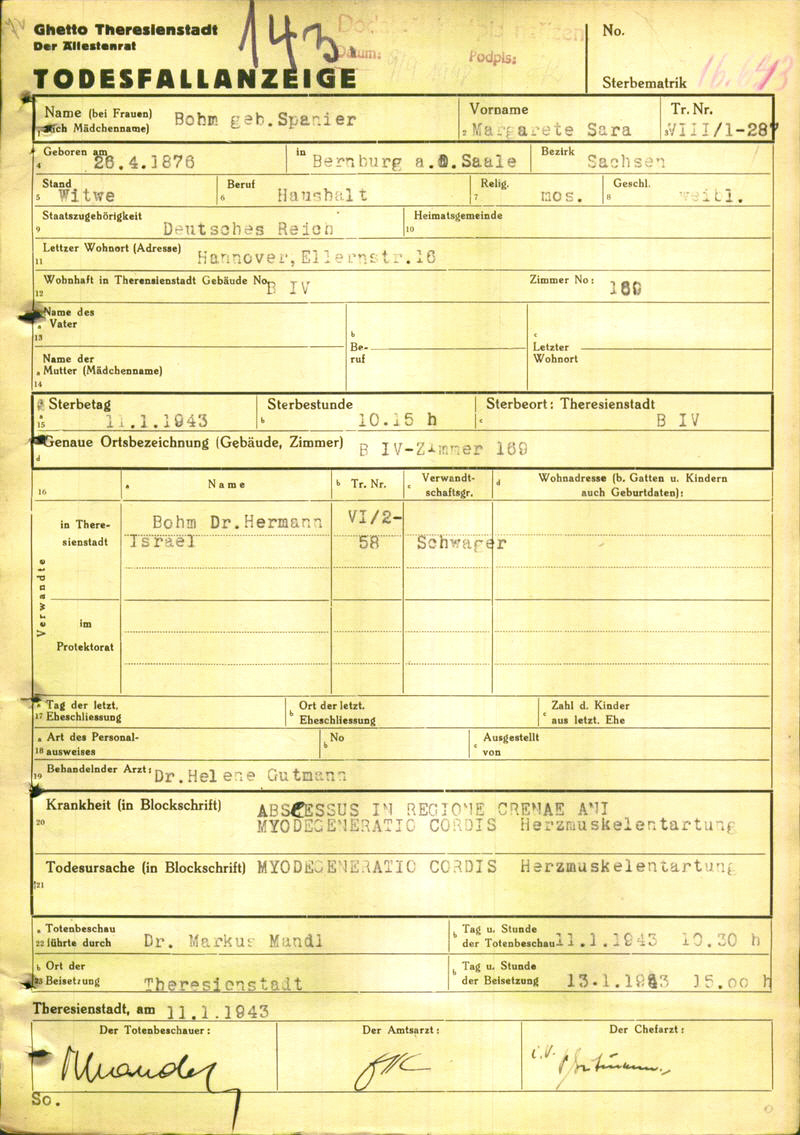 Ghetto Theresienstadt
Der Ältestenrat
143
TODESFALLANZEIGE
Datum:
Podpis:
No.
Sterbematrik 16.643
Name (bei Frauen) Bohm geb.Spanier
auch Mädchenname)
Vorname
Margarete Sara
Tr. Nr.
VIII/1-287
Geboren am 26.4.1876
in Bernburg a.d.Saale
Bezirk Sachsen
Stand Witwe
Beruf Haushalt
Relig. mos.
Geschl. weibl.
Staatszugehörigkeit Deutsches Reich
Heimatsgemeinde
Lettzer Wohnort (Adresse) Hannover, Ellernstr.16
Wohnhaft in Theresienstadt Gebäude No. B IV
Zimmer No: 169
Name des
Vater
Be-
ruf
Letzter
Wohnort
Name der
Mutter (Mädchenname)
Sterbetag 11.1.1943
Sterbestunde 10.15 h
Sterbeort: Theresienstadt B IV
Genaue Ortsbezeichnung (Gebäude, Zimmer) B IV-Zimmer 169
16 a Name b Tr. Nr. c Verwandt-
schaftsgr. d Wohnadresse (b. Gatten u. Kindern
auch Geburtdaten):
Verwandte
in There-
sienstadt
Bohm Dr.Hermann VI/2-
Israel 58 Schwager
im
Protektorat
Tag der letzt.
17 Eheschliessung
b Ort der letzt.
Eheschliessung
c Zahl d. Kinder
aus letzt. Ehe
a Art des Personal-
18 ausweises
b No
c Ausgestellt
von
19 Behandelnder Arzt: Dr.Helene Gutmann
Krankheit (in Blockschrift) ABSCESSUS IN REGIONE CRENAE ANI
20 MYODEGENERATIO CORDIS Herzmuskelentartung
Todesursache (in Blockschrift) MYODEGENERATIO CORDIS Herzmuskelentartung
21
a Totenbeschau
22 führte durch Dr. Markus Mandl
b Tag u. Stunde
der Totenbeschau 11.1.1943 10.30 h
b Ort der
23 Beisetzung Theresienstadt
b Tag u. Stunde
der Beisetzung 13.1.1943 15.00 h
Theresienstadt, am 11.1.1943
Der Totenbeschauer:
Der Amtsarzt:
Der Chefarzt:
i.V.
So.